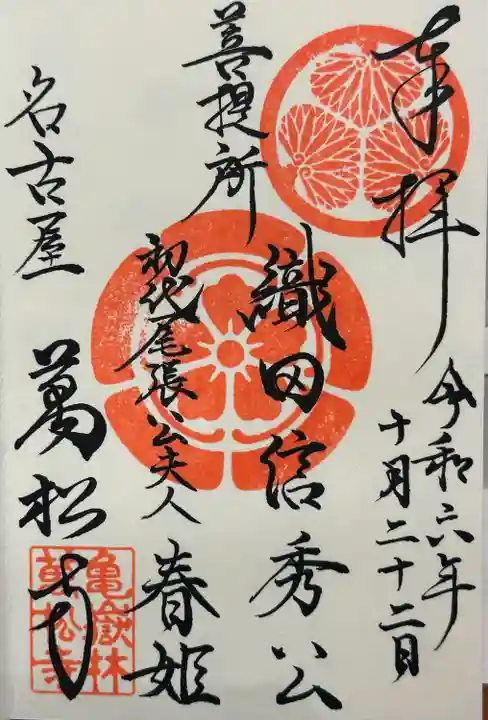 奉拝
令和六年
十月二十二日
織田信秀公
菩提所
初代尾張公夫人 春姫
名古屋
萬松寺
亀嶽林
萬松寺